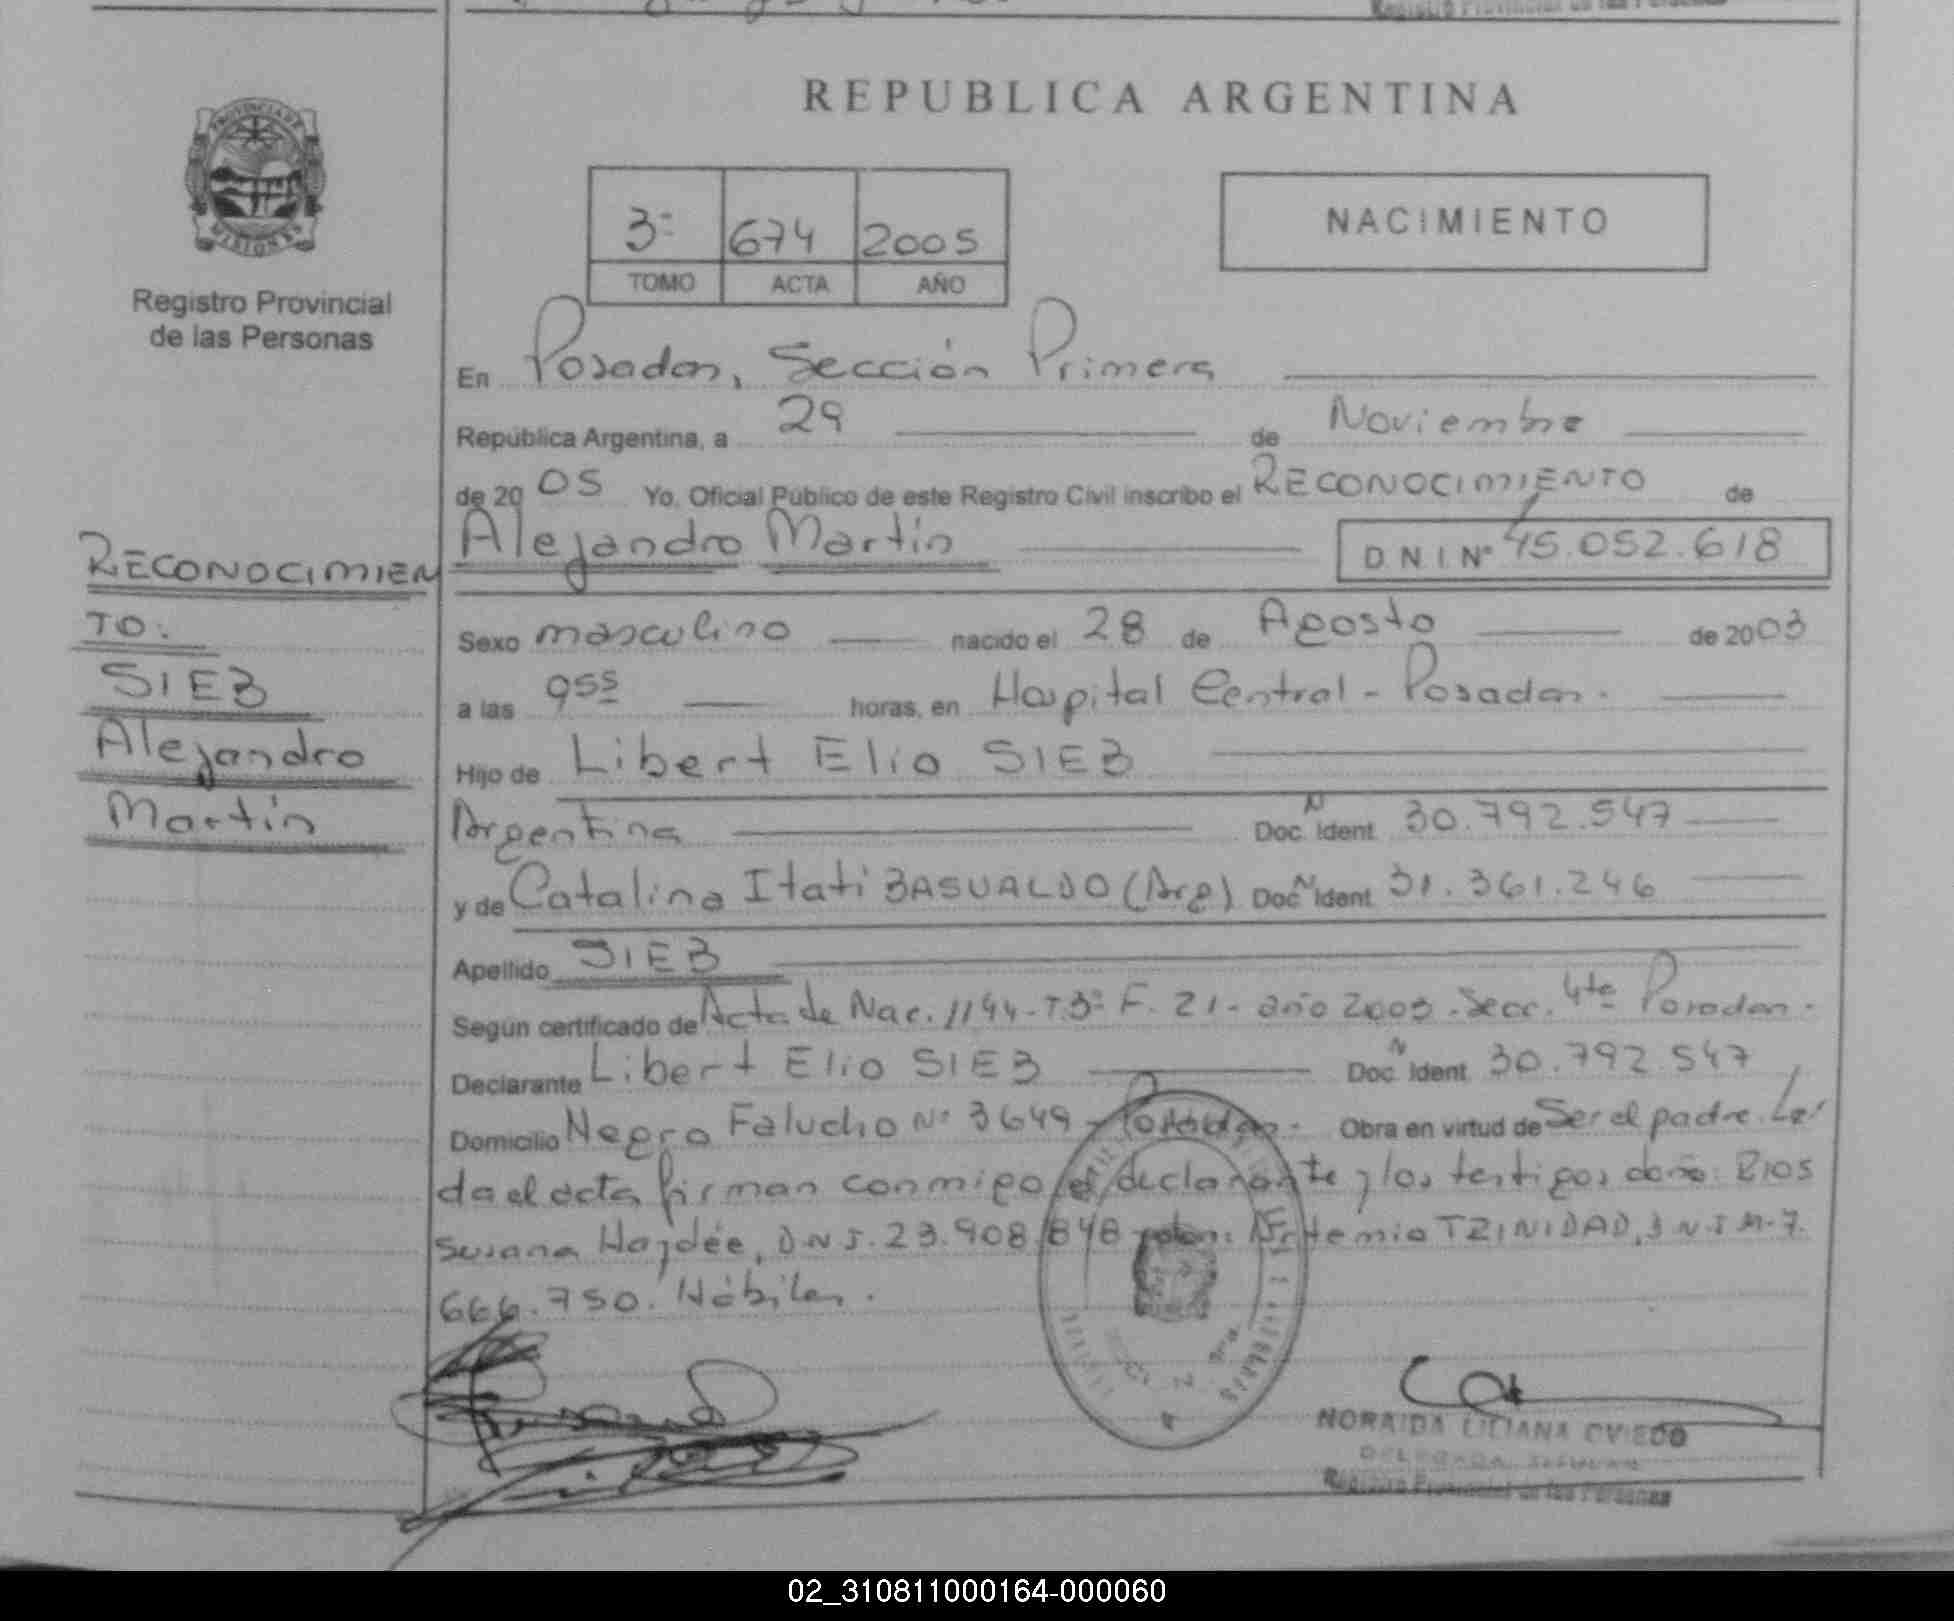 REPUBLICA ARGENTINA
PROVINCIA DE
MISIONES
Registro Provincial
de las Personas
3º 674 2005
TOMO ACTA AÑO
NACIMIENTO
En Posadas, Sección Primera
República Argentina, a 29 de Noviembre
de 2005 Yo, Oficial Público de este Registro Civil inscribo el RECONOCIMIENTO de
Alejandro Martín D.N.I. Nº 45.052.618
RECONOCIMIEN
TO:
SIEB
Alejandro
Martín
Sexo masculino nacido el 28 de Agosto de 2003
a las 9 55 horas, en Hospital Central - Posadas.
Hijo de Libert Elio SIEB
Argentina Doc. N Ident. 30.792.547
y de Catalina Itatí BASUALDO (Arg) Doc. N Ident. 31.361.246
Apellido SIEB
Según certificado de Acta de Nac. 1144-T.3º F. 21 - año 2003 - Secc. 4ta Posadas.
Declarante Libert Elio SIEB Doc. N Ident. 30.792.547
Domicilio Negro Falucho Nº 3649 - Posadas. Obra en virtud de Ser el padre. Leí
da el acta firman conmigo el declarante y los testigos doña: RIOS
Susana Haydée, DNI. 23.908.848 y don: Artemio TRINIDAD, DNI M-7.
666.750. Hábiles.
NORAIDA LILIANA OVIEDO
DELEGADA TITULAR
Registro Provincial de las Personas
02_310811000164-000060